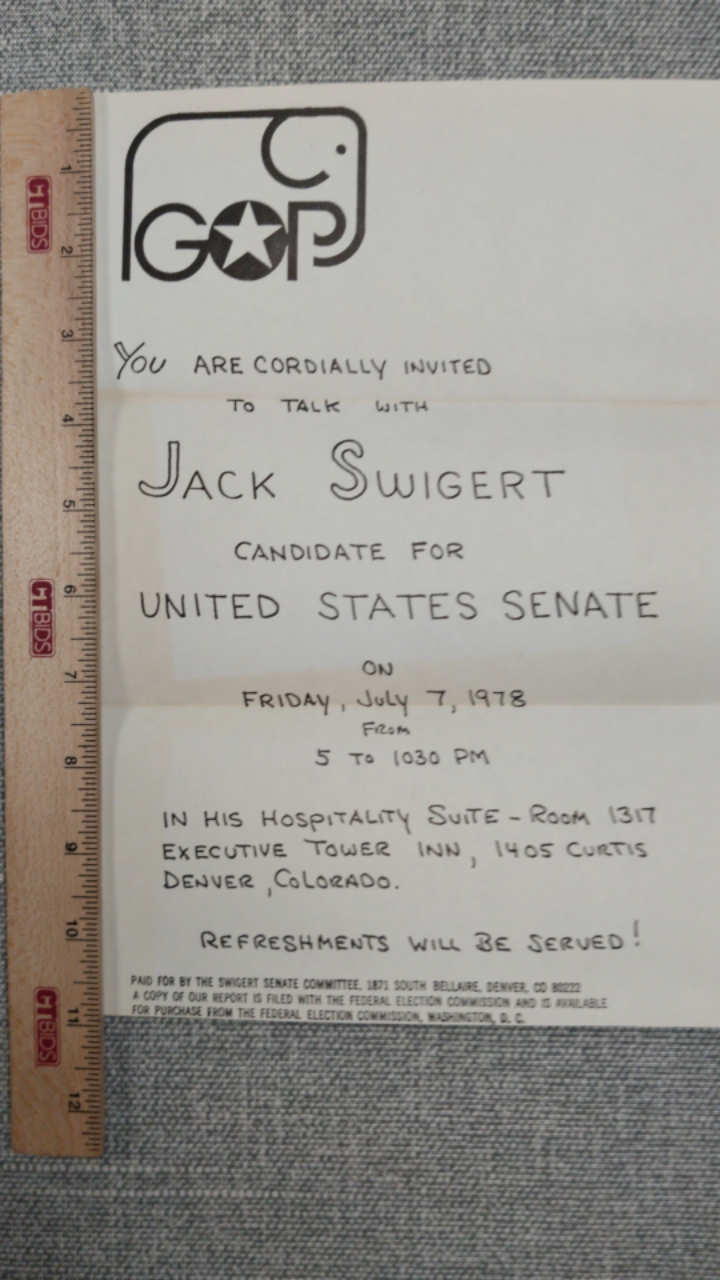 GOP
You ARE CORDIALLY INVITED
TO TALK WITH
JACK SWIGERT
CANDIDATE FOR
UNITED STATES SENATE
ON
FRIDAY, July 7, 1978
FROM
5 To 1030 PM
IN HIS HOSPITALITY SUITE - ROOM 1317
EXECUTIVE TOWER INN, 1405 CURTIS
DENVER, COLORADO.
REFRESHMENTS WILL BE SERVED!
PAID FOR BY THE SWIGERT SENATE COMMITTEE, 1871 SOUTH BELLAIRE, DENVER, CO 80222
A COPY OF OUR REPORT IS FILED WITH THE FEDERAL ELECTION COMMISSION AND IS AVAILABLE
FOR PURCHASE FROM THE FEDERAL ELECTION COMMISSION, WASHINGTON, D. C.
1
2
3
4
5
6
7
8
9
10
11
12
HIBIDS
HIBIDS
HIBIDS